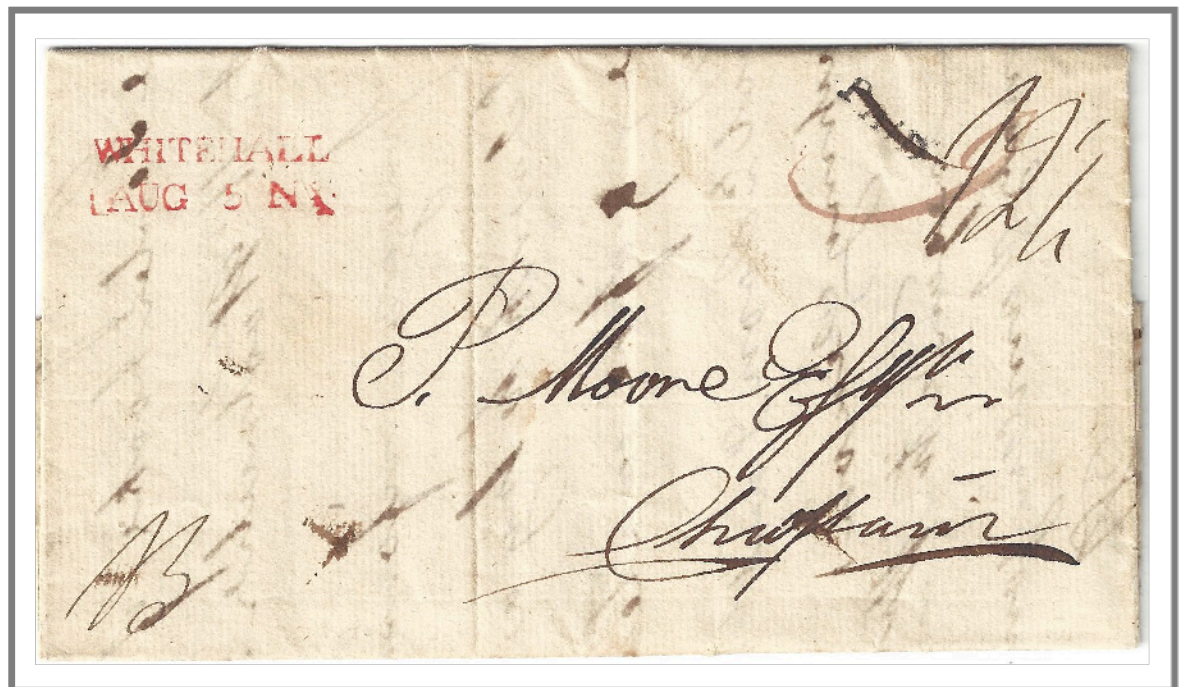 WHITEHALL
AUG 5 NY
PAID
12½
P. Moore Esqr
Champlain